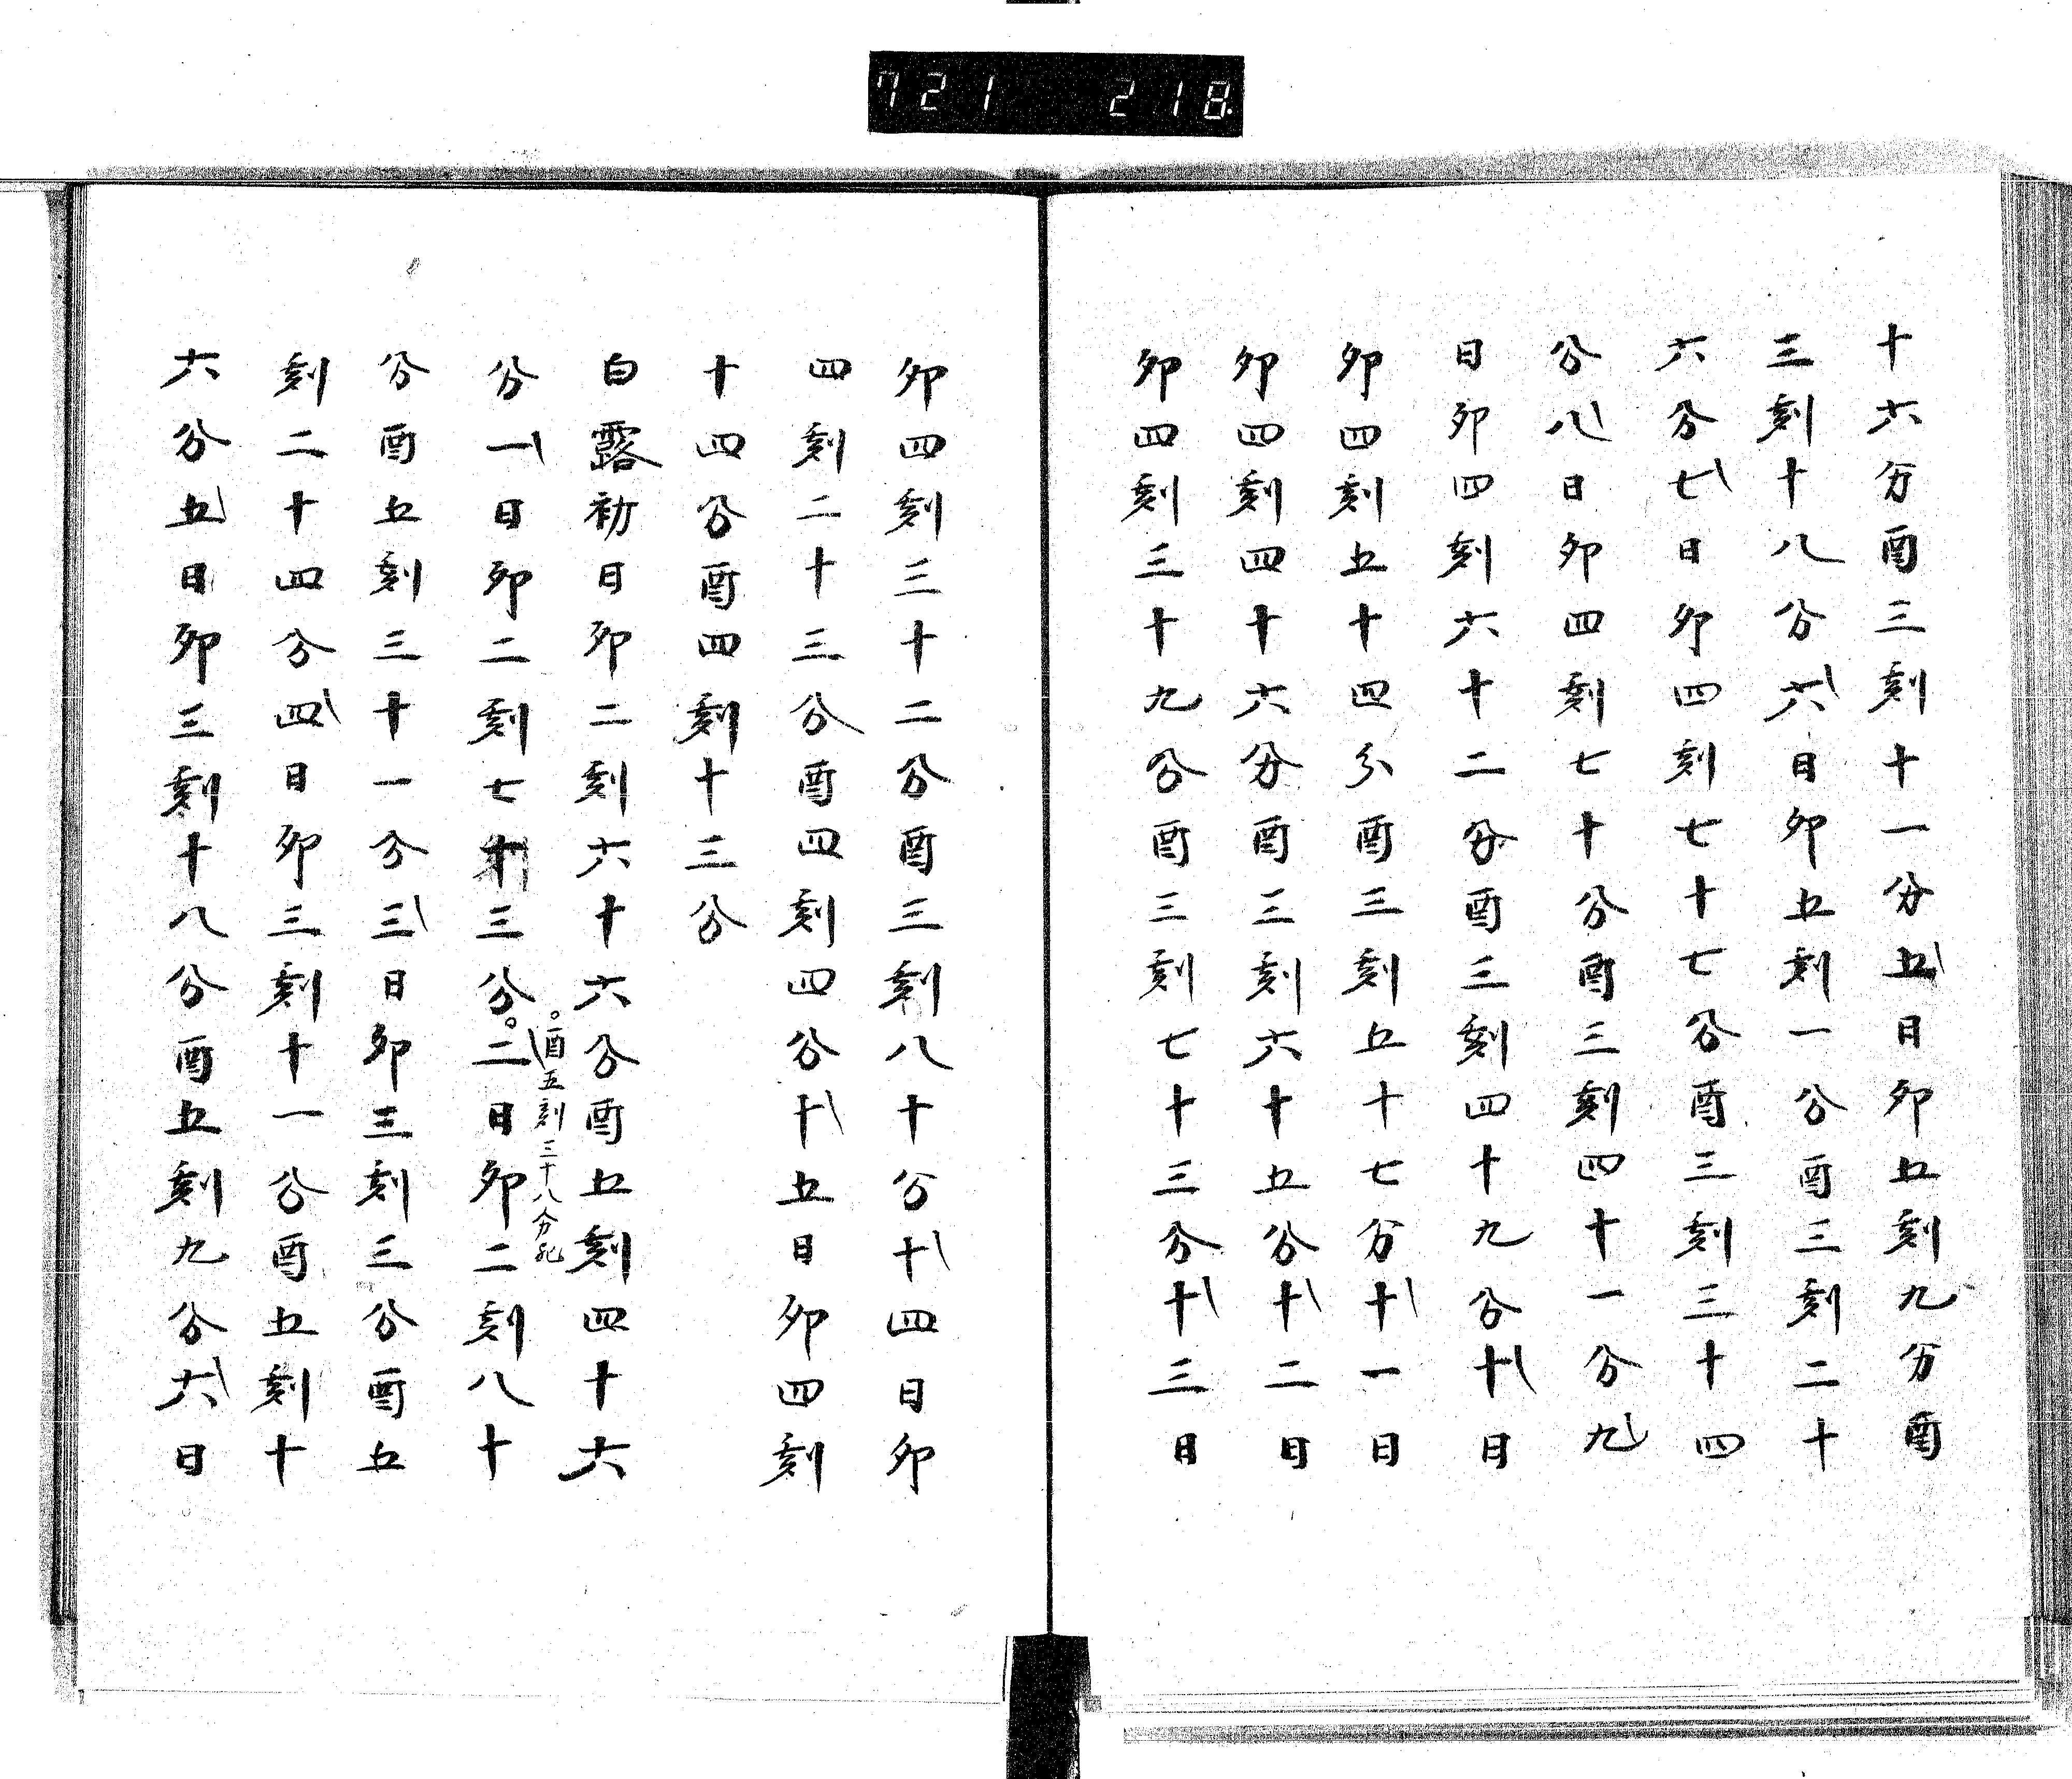 721 218
十六分酉三刻十一分五日卯五刻九分酉
三刻十八分六日卯五刻一分酉三刻二十
六分七日卯四刻七十七分酉三刻三十四
分八日卯四刻七十分酉三刻四十一分九
日卯四刻六十二分酉三刻四十九分十日
卯四刻五十四分酉三刻五十七分十一日
卯四刻四十六分酉三刻六十五分十二日
卯四刻三十九分酉三刻七十三分十三日
卯四刻三十二分酉三刻八十分十四日卯
四刻二十三分酉四刻四分十五日卯四刻
十四分酉四刻十三分
白露初日卯二刻六十六分酉五刻四十六
分一日卯二刻七十三分二日卯二刻八十
酉五刻三十八分
分酉五刻三十一分三日卯三刻三分酉五
刻二十四分四日卯三刻十一分酉五刻十
六分五日卯三刻十八分酉五刻九分六日